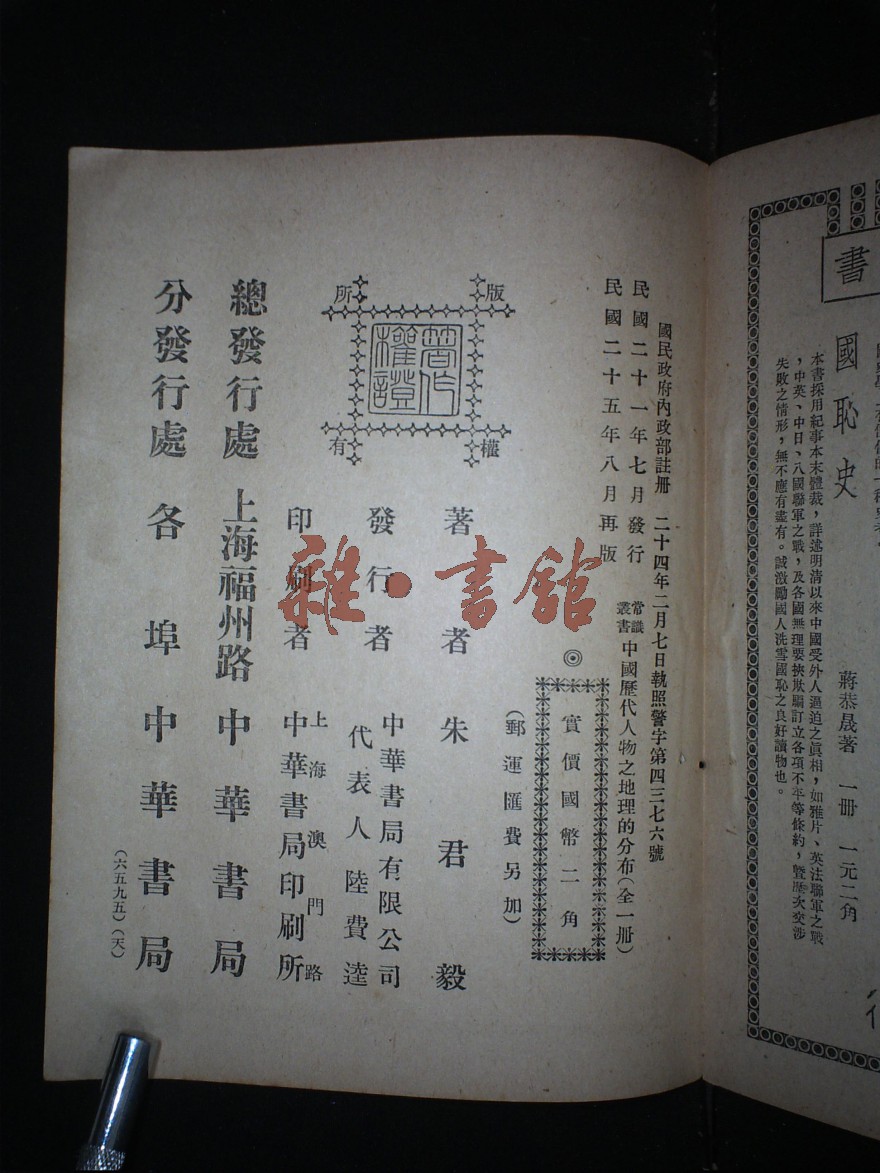 國民政府內政部註册　二十四年二月七日執照警字第四三七六號
民國二十一年七月發行
民國二十五年八月再版
常識叢書 中國歷代人物之地理的分布(全一册)
◎實價國幣二角
(郵運匯費另加)
著者 朱君毅
發行者 中華書局有限公司
代表人 陸費逵
印刷者 上海澳門路
中華書局印刷所
總發行處 上海福州路 中華書局
分發行處 各埠中華書局
(六五九五)(天)
版權所有
著作權證
雜·書館
書
國恥史
蔣恭晟著　一册　一元二角
本書採用紀事本末體裁，詳述明清以來中國受外人逼迫之眞相，如雅片、英法聯軍之戰
，中英、中日、八國聯軍之戰，及各國無理要挾欺騙訂立各項不平等條約，暨歷次交涉
失敗之情形，無不應有盡有。誠激勵國人洗雪國恥之良好讀物也。